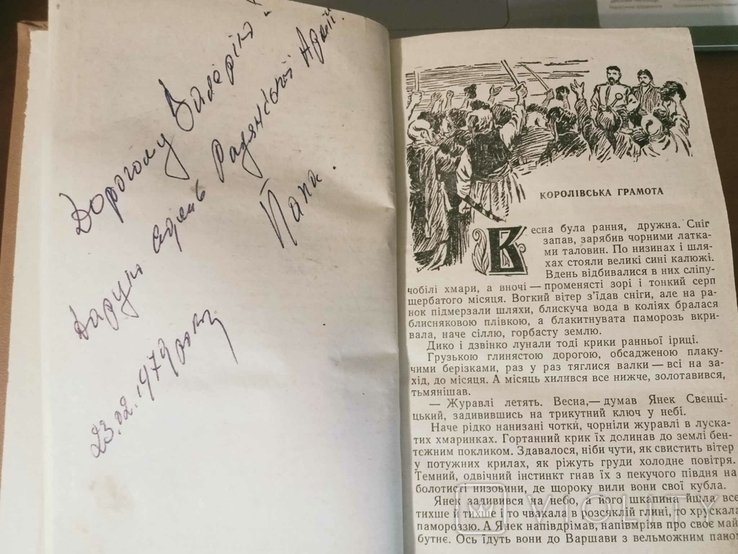 Дорогому Валерію
Дарую в день Радянської Армії
Папа.
23.02.1979 року
КОРОЛІВСЬКА ГРАМОТА
Весна була рання, дружна. Сніг
запав, зарябив чорними латка-
ми таловин. По низинах і шля-
хах стояли великі сині калюжі.
Вдень відбивалися в них сліпу-
чобілі хмари, а вночі — променясті зорі і тонкий серп
щербатого місяця. Вогкий вітер з'їдав сніги, але на ра-
нок підмерзали шляхи, блискуча вода в коліях бралася
блисняковою плівкою, а блакитнувата паморозь вкри-
вала, наче сіллю, горбасту землю.
Дико і дзвінко лунали тоді крики ранньої іриці.
Грузькою глинястою дорогою, обсадженою плаку-
чими берізками, раз у раз тяглися валки — всі на за-
хід, до місяця. А місяць хилився все нижче, золотавився,
тьмянішав.
— Журавлі летять. Весна,— думав Янек Свєнці-
ціцький, задивившись на трикутний ключ у небі.
Наче рідко нанизані чотки, чорніли журавлі в луска-
тих хмаринках. Гортанний крик їх долинав до землі бен-
тежним покликом. Здавалося, ніби чути, як свистить вітер
у потужних крилах, як ріжуть груди холодне повітря.
Темний, одвічний інстинкт гнав їх з пекучого півдня на
болотисті низовини, де щороку вили вони свої кубла.
Янек задивився на небо, а його шкапина йшла все
тихше й тихше і то чвакала в розсяклій глині, то хрускала
памороззю. А Янек напівдрімав, напівмріяв про своє май-
бутнє. Ось їдуть вони до Варшави з вельможним пано
VIOLITY